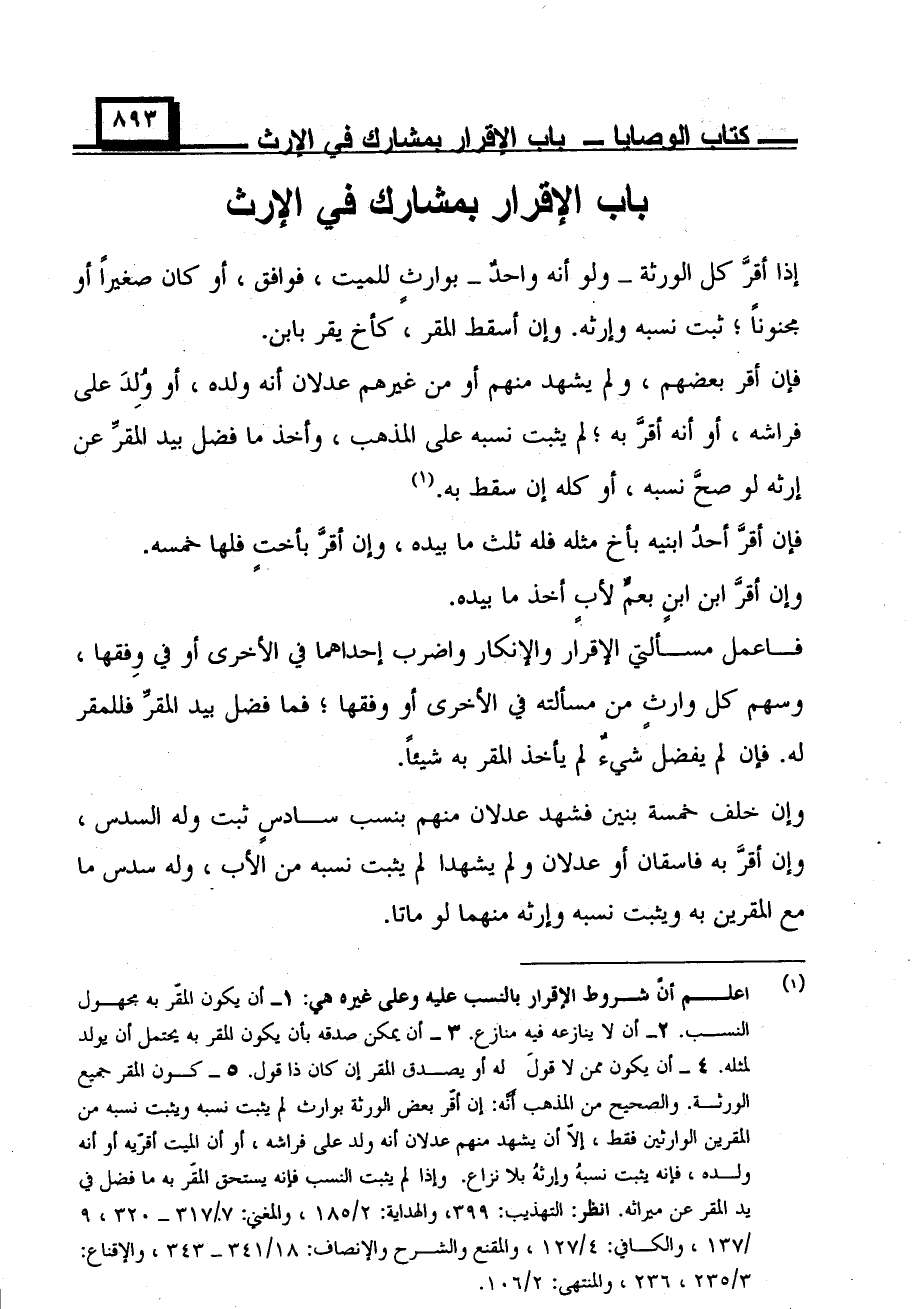 كتاب الوصايا – باب الإقرار بمشارك في الإرث
٨٩٣
باب الإقرار بمشارك في الإرث
إذا أقرَّ كل الورثة – ولو أنه واحدٌ – بوارثٍ للميت ، فوافق ، أو كان صغيراً أو
مجنوناً ؛ ثبت نسبه وإرثه. وإن أسقط المقر ، كأخ يقر بابن.
فإن أقر بعضهم ، و لم يشهد منهم أو من غيرهم عدلان أنه ولده ، أو وُلِدَ على
فراشه ، أو أنه أقرَّ به ؛ لم يثبت نسبه على المذهب ، وأخذ ما فضل بيد المقرِّ عن
إرثه لو صحَّ نسبه ، أو كله إن سقط به.(١)
فإن أقرَّ أحدُ ابنيه بأخ مثله فله ثلث ما بيده ، وإن أقرَّ بأختٍ فلها خمسه.
وإن أقرَّ ابن ابنٍ بعمٍّ لأبٍ أخذ ما بيده.
فـاعمل مسـألتي الإقرار والإنكار واضرب إحداهما في الأخرى أو في وِفقها ،
وسهم كل وارثٍ من مسألته في الأخرى أو وفقها ؛ فما فضل بيد المقرِّ فللمقر
له. فإن لم يفضل شيءٌ لم يأخذ المقر به شيئاً.
وإن خلف خمسة بنين فشهد عدلان منهم بنسب سـادسٍ ثبت وله السدس ،
وإن أقرَّ به فاسقان أو عدلان و لم يشهدا لم يثبت نسبه من الأب ، وله سدس ما
مع المقرين به ويثبت نسبه وإرثه منهما لو ماتا.
(١) اعلـم أنَّ شـروط الإقرار بالنسب عليه وعلى غيره هي: ١– أن يكون المقّر به مجهول
النسـب. ٢– أن لا ينازعه فيه منازع. ٣ – أن يمكن صدقه بأن يكون المقر به يحتمل أن يولد
لمثله. ٤ – أن يكون ممن لا قولَ له أو يصـدق المقر إن كان ذا قول. ٥ – كـون المقر جميع
الورثـة. والصحيح من المذهب أنَّه: إن أقّر بعض الورثة بوارث لم يثبت نسبه ويثبت نسبه من
المقرين الوارثين فقط ، إلاّ أن يشهد منهم عدلان أنه ولد على فراشه ، أو أن الميت أقرّبه أو أنه
ولـده ، فإنه يثبت نسبهُ وإرثهُ بلا نزاع. وإذا لم يثبت النسب فإنه يستحق المقر به ما فضل في
يد المقر عن ميراثه. انظر: التهذيب: ٣٩٩، والهداية: ١٨٥/٢ ، والمغني: ٣١٧/٧ – ٣٢٠ ، ٩
/١٣٧ ، والكافي: ١٢٧/٤ ، والمقنع والشـرح والإنصاف: ٣٤١/١٨ – ٣٤٣ ، والإقناع:
٢٣٥/٣ ، ٢٣٦ ، والمنتهى: ١٠٦/٢.